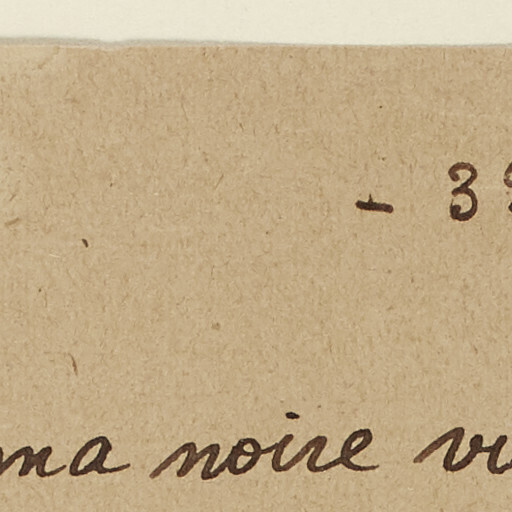 - 3
ma noire